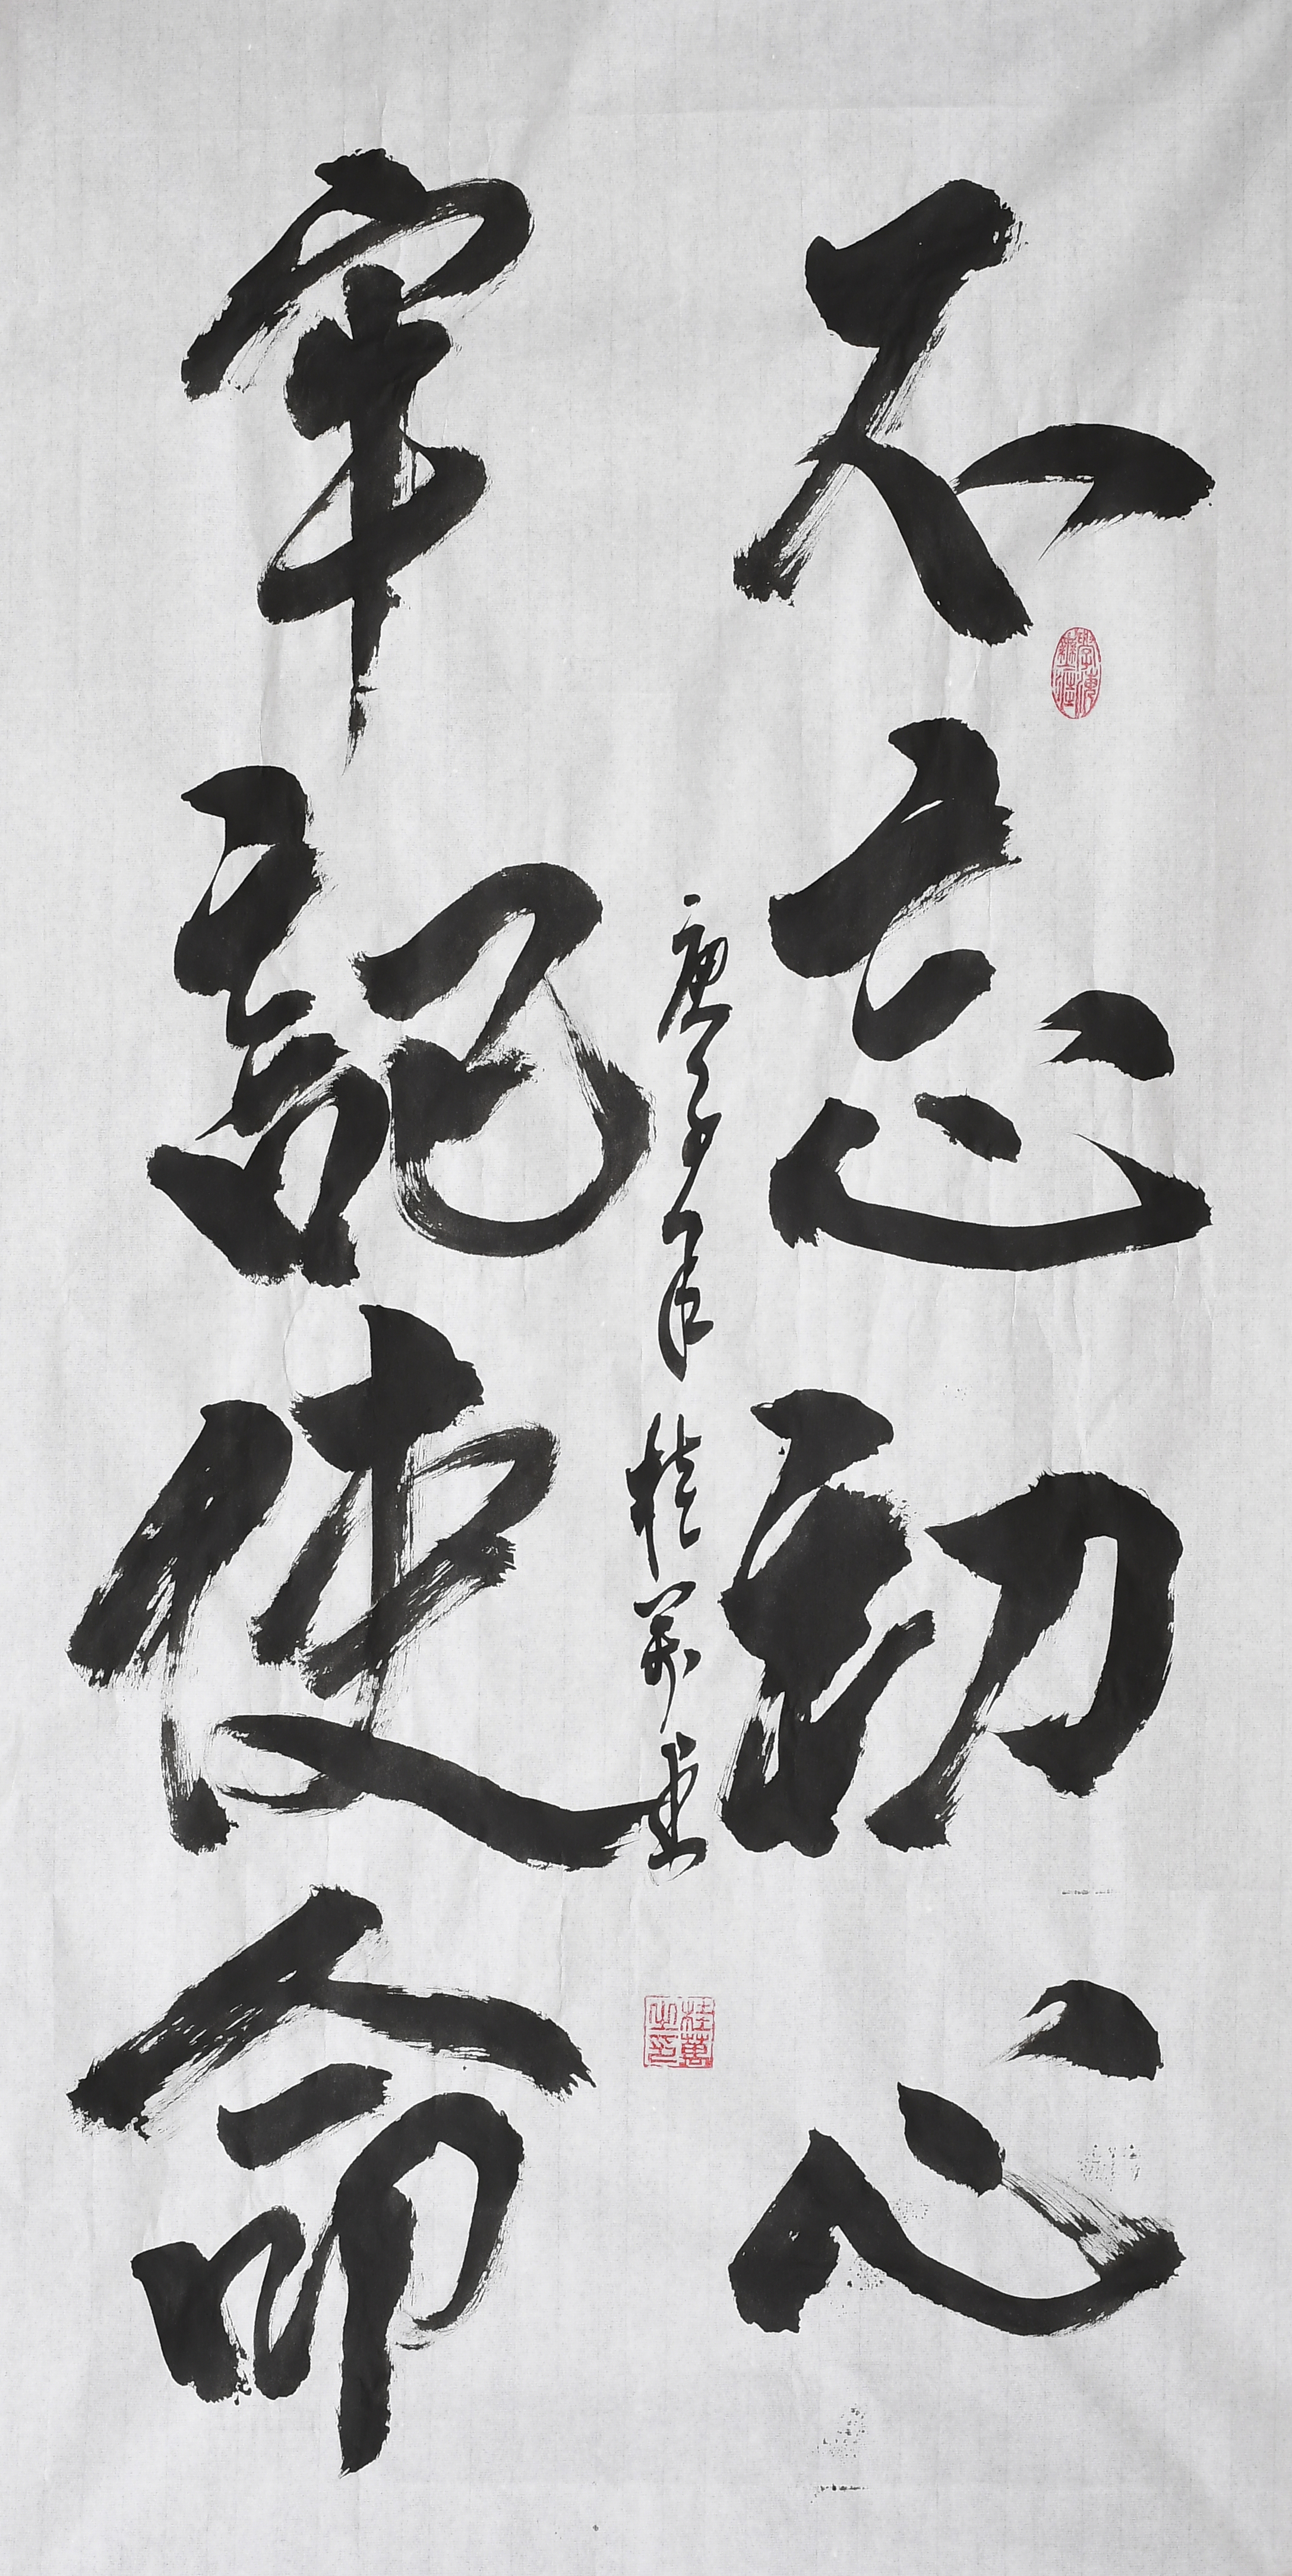 不忘初心
牢記使命
庚子年 桂萬
桂萬之印